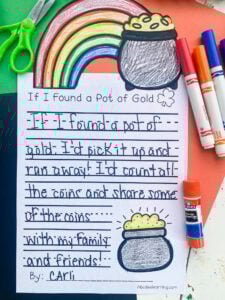 If I Found a Pot of Gold
If I found a pot of
gold. I'd pick it up and
run away! I'd count all
the coins and share some
of the coins
with my family
and friends!
By: Carli